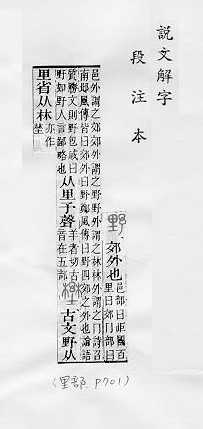 說文解字
段注本
野 郊外也
邑部曰歫國百
里曰郊冂部曰
邑外謂之郊郊外謂之野野外謂之林林外謂之冂詩召
南邶風傳皆曰郊外曰野鄭風傳曰野四郊之外也論語
質勝文則野包咸曰
野如野人言鄙略也
从里予聲
羊者切古
音在五部
壄 古文野从
里省从林
亦作
埜
(里部 P701)